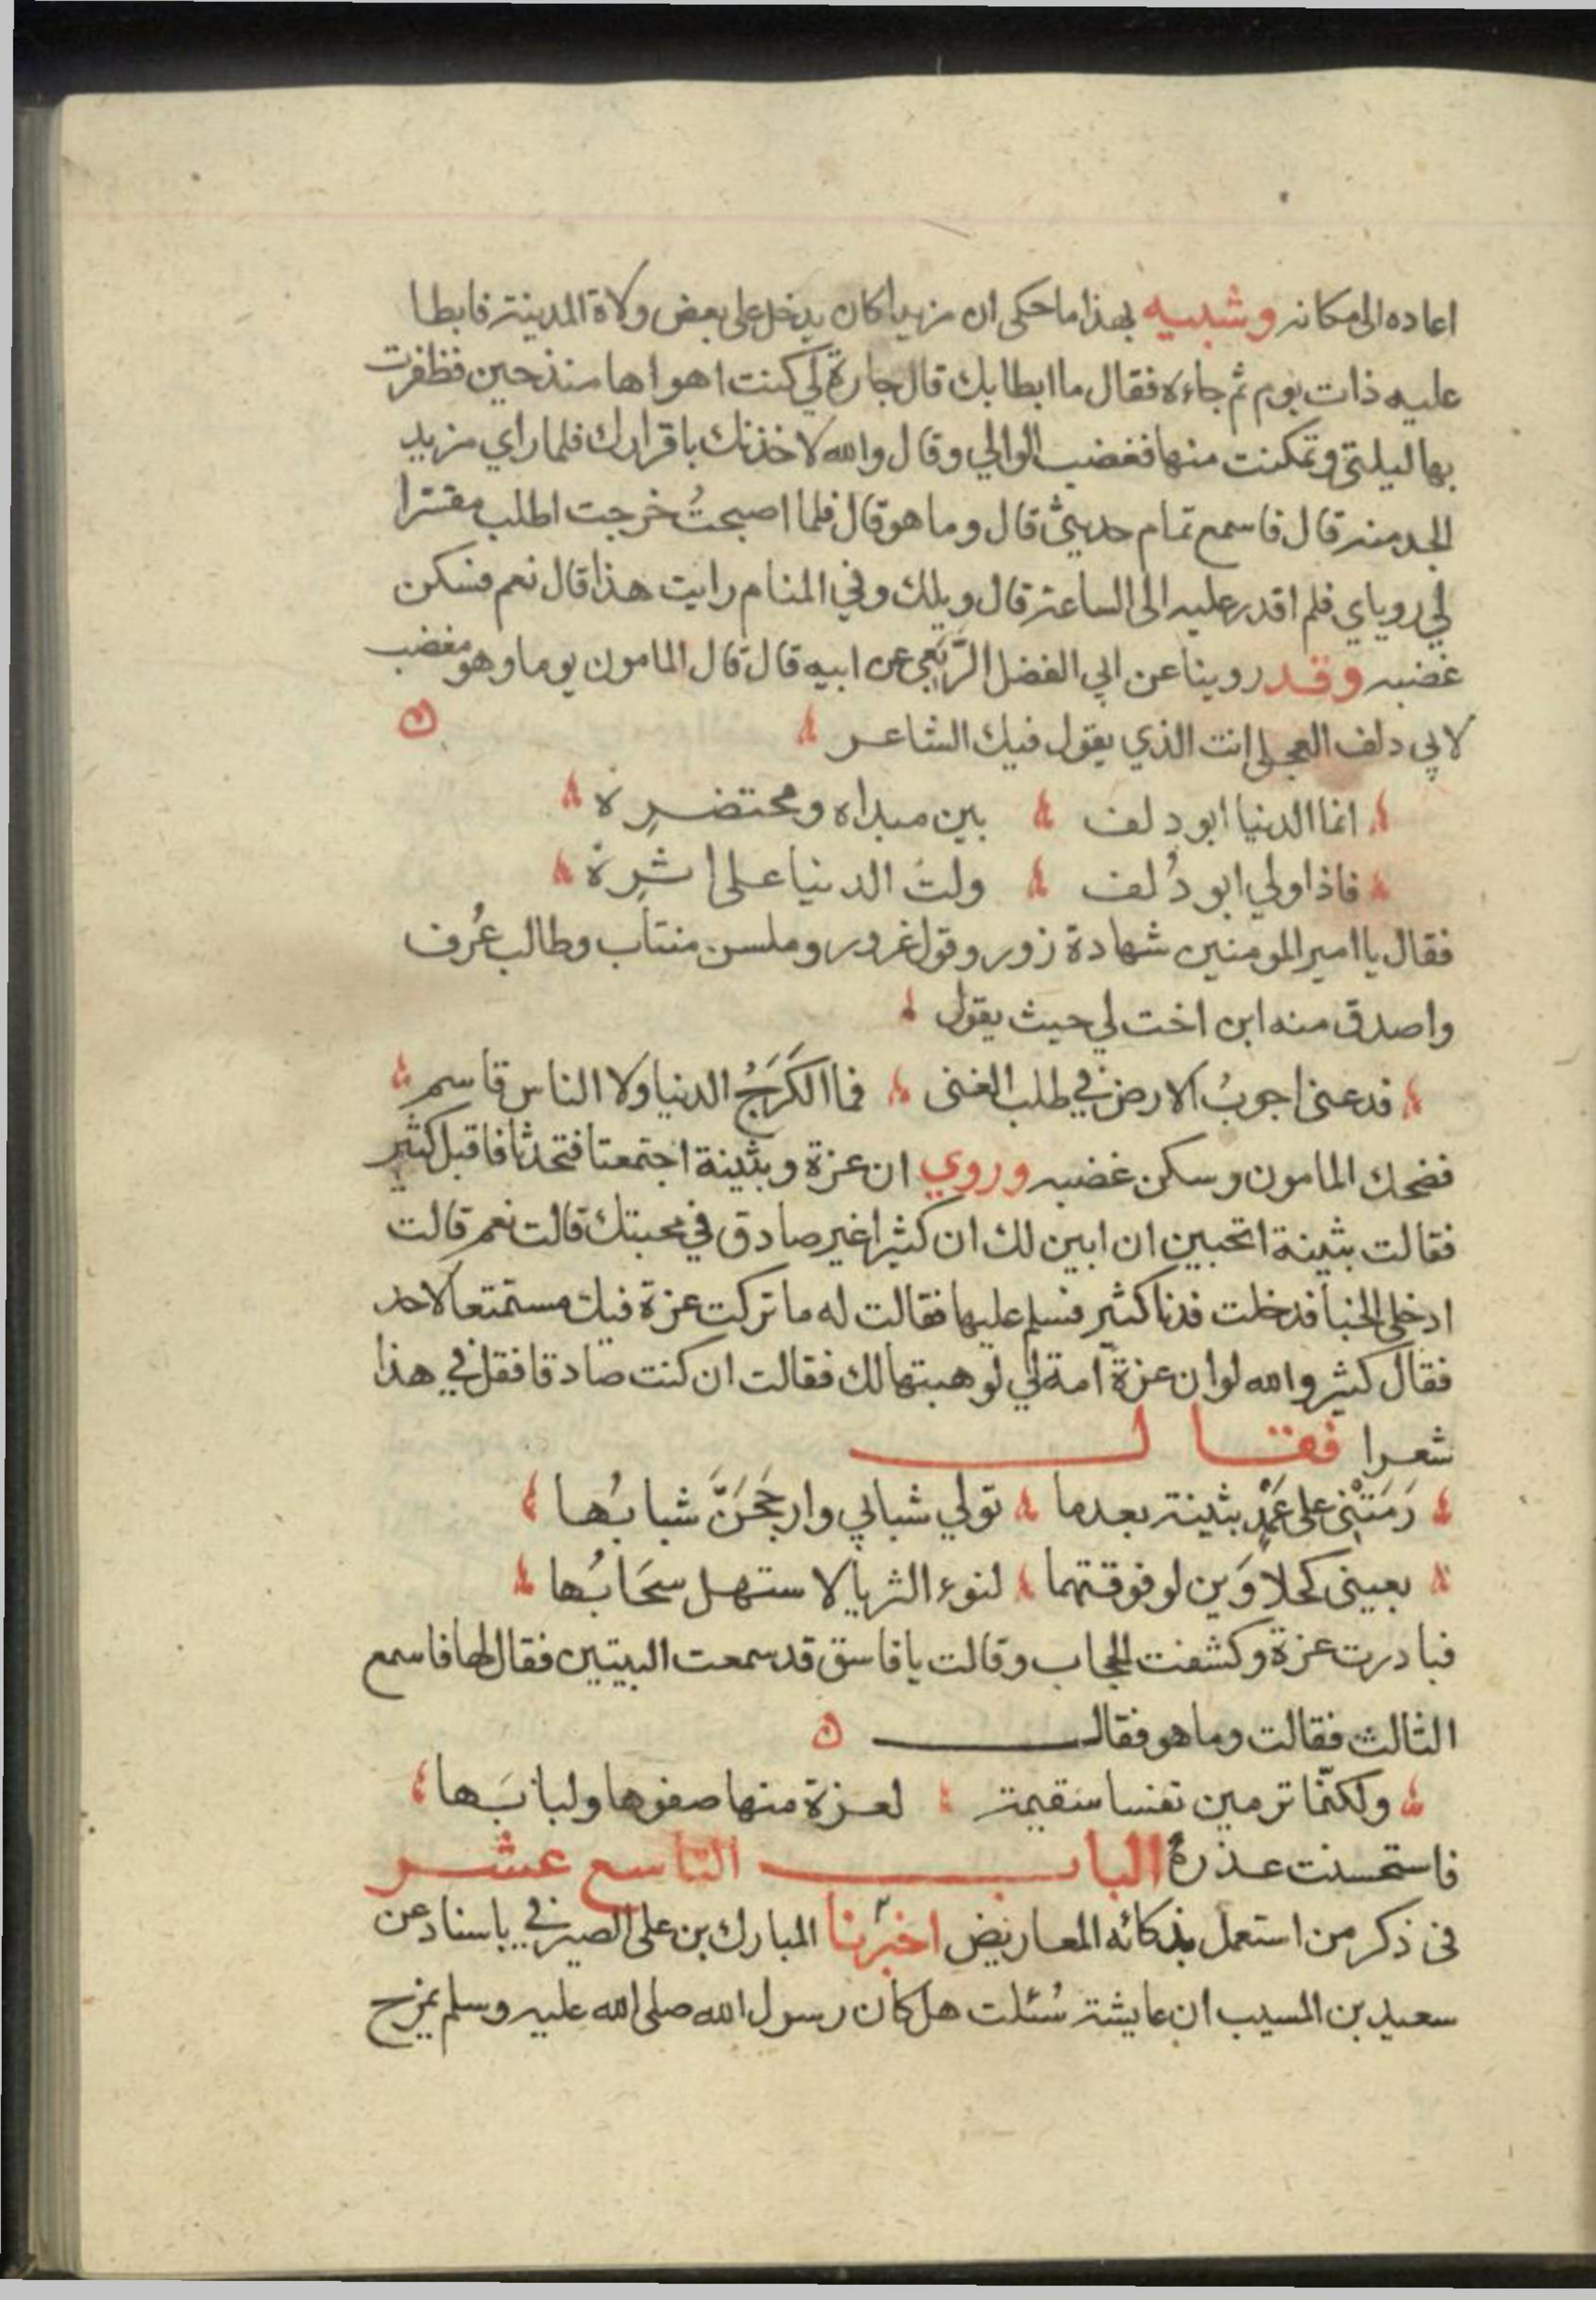 اعاده الى مكانه وشبيه بهذا ما حكى ان مزيدا كان يدخل على بعض ولاة المدينة فابطا
عليه ذات يوم ثم جاءه فقال ما ابطا بك قال جارة لي كنت اهواها منذ حين فظفرت
بها ليلتي وتمكنت منها فغضب الوالي وقال والله لاخذنك باقرارك فلما راي مزيد
الجد منه قال فاسمع تمام حديثي قال وما هو قال فلما اصبحتُ خرجت اطلب مفسرا
لي روياي فلم اقدر عليه الى الساعة قال ويلك وفي المنام رايت هذا قال نعم فسكن
غضبه وقد روينا عن ابي الفضل الرَّبَعي عن ابيه قال قال المامون يوما وهو مغضب
لابي دلف العجلي انت الذي يقول فيك الشاعر
انما الدنيا ابو دلف بين مبداه ومحتضرِه
فاذا ولي ابو دُلف ولت الدنيا على اثرِه
فقال يا امير المومنين شهادة زور وقول غرور وملسن منتاب وطالب عُرف
واصدق منه ابن اخت لي حيث يقول
فدعني اجوبُ الارض في طلب الغنى فما الكَرَجُ الدنيا ولا الناس قاسم
فضحك المامون وسكن غضبه وروي ان عزة وبثينة اجتمعتا فتحدثا فاقبل كثير
فقالت بثينة اتحبين ان ابين لك ان كثيرا غير صادق في محبتك قالت نعم قالت
ادخلي الخبا فدخلت فدنا كثير فسلم عليها فقالت له ما تركت عزة فيك مستمتعا لاحد
فقال كثير والله لو ان عزة امة لي لوهبتها لك فقالت ان كنت صادقا فقل في هذا
شعرا فقال
رَمَتْني على عَمْدٍ بثينة بعدما تولي شبابي وارجَحَنَّ شبابُها
بعيني كحلاوَين لو فوقتهما لنوء الثريا لاستهل سحَابُها
فبادرت عزة وكشفت الحجاب وقالت يا فاسق قد سمعت البيتين فقال لها فاسمع
الثالث فقالت وما هو فقال
ولكنّما ترمين نفسا سقيمة لعزة منها صفوها ولبابَها
فاستحسنت عذره الباب التاسع عشر
في ذكر من استعمل بذكائه المعاريض اخبرنا المبارك بن على الصيرفي باسناد عن
سعيد بن المسيب ان عايشة سُئلت هل كان رسول الله صلى الله عليه وسلم يمزح